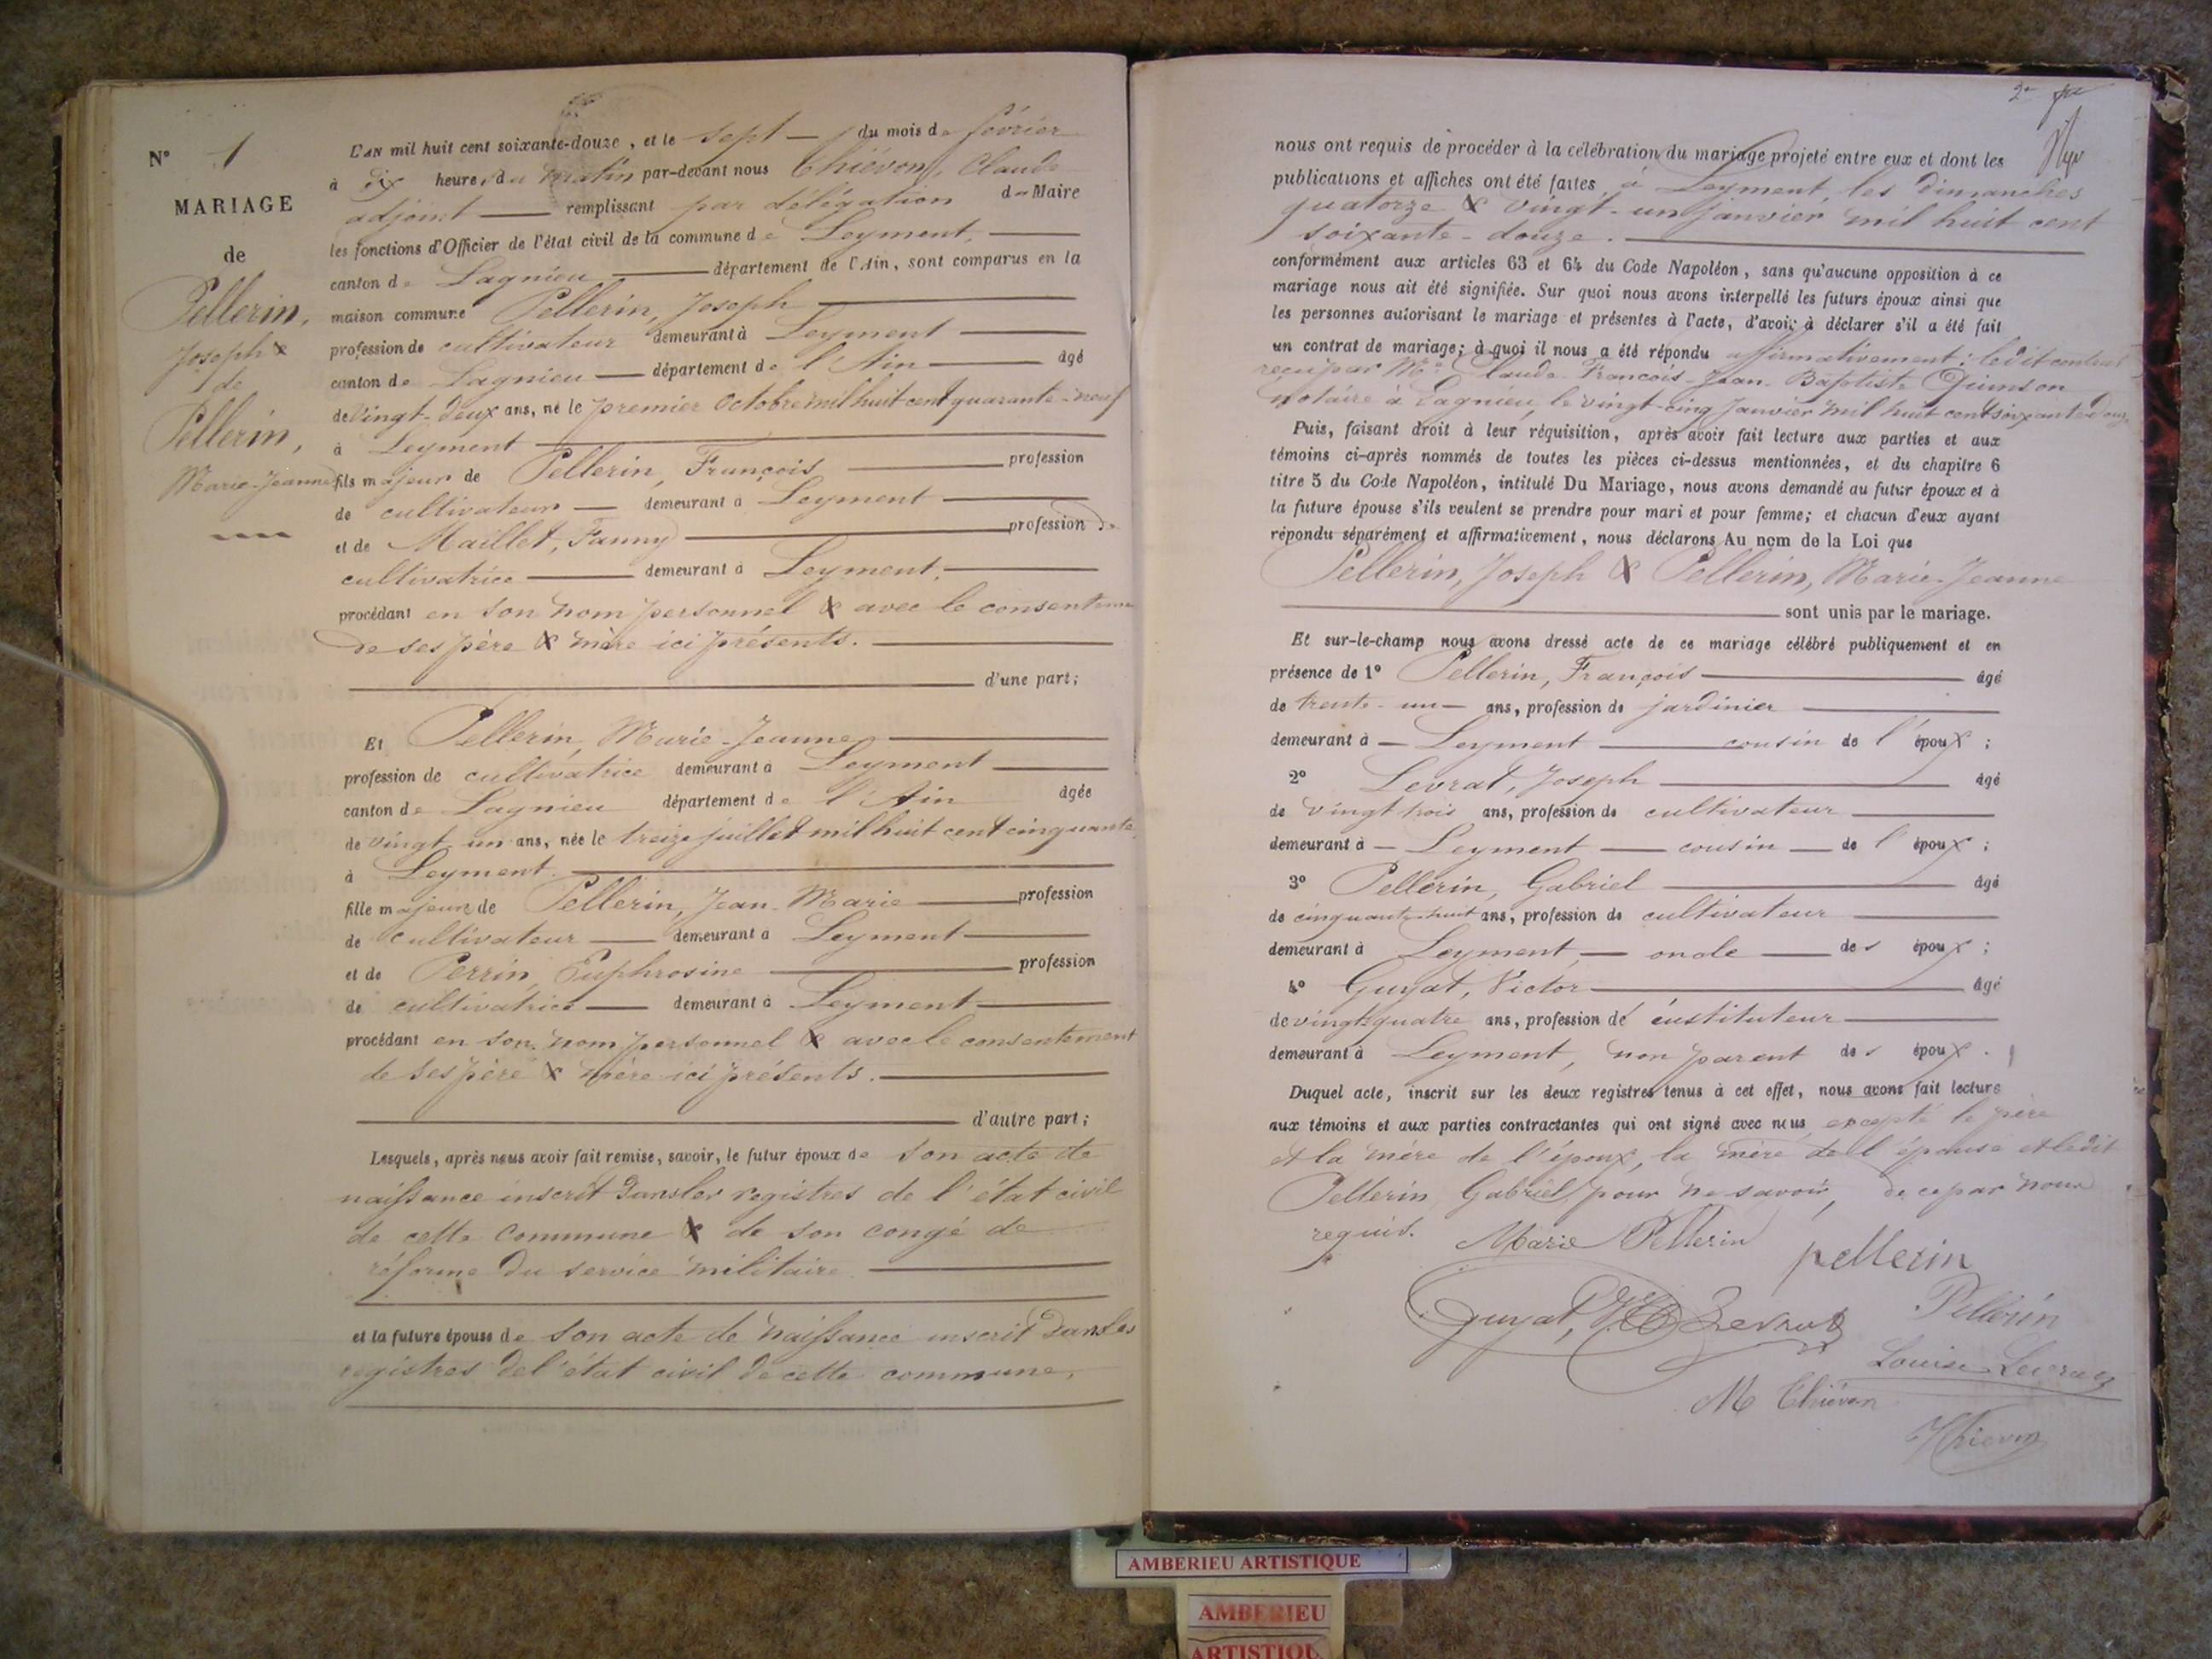 N° 1
MARIAGE
de
Pellerin,
Joseph &
de
Pellerin,
Marie-Jeanne
L'AN mil huit cent soixante-douze, et le sept du mois de février
à dix heures du matin par-devant nous Chiévon, Claude
adjoint remplissant par délégation du Maire
les fonctions d'Officier de l'état civil de la commune de Leyment,
canton de Lagnieu département de l'Ain, sont comparus en la
maison commune Pellerin, Joseph
profession de cultivateur demeurant à Leyment
canton de Lagnieu département de l'Ain âgé
de Vingt-deux ans, né le premier Octobre mil huit cent quarante-neuf
à Leyment
fils majeur de Pellerin, François profession
de cultivateur demeurant à Leyment
et de Maillet, Fanny profession de
cultivatrice demeurant à Leyment,
procédant en son nom personnel & avec le consentem
de ses père & mère ici présents.
d'une part;
Et Pellerin, Marie-Jeanne
profession de cultivatrice demeurant à Leyment
canton de Lagnieu département de l'Ain âgée
de vingt un ans, née le treize juillet mil huit cent cinquante
à Leyment.
fille majeure de Pellerin, Jean-Marie profession
de cultivateur demeurant à Leyment
et de Perrin, Euphrosine profession
de cultivatrice demeurant à Leyment
procédant en son nom personnel & avec le consentement
de ses père & mère ici présents.
d'autre part;
Lesquels, après nous avoir fait remise, savoir, le futur époux de son acte de
naissance inscrit dans les registres de l'état civil
de cette commune & de son congé de
réforme du service militaire
et la future épouse de son acte de naissance inscrit dans les
registres de l'état civil de cette commune,
2e
nous ont requis de procéder à la célébration du mariage projeté entre eux et dont les
publications et affiches ont été faites à Leyment, les dimanches
quatorze & vingt-un janvier mil huit cent
soixante-douze.
conformément aux articles 63 et 64 du Code Napoléon, sans qu'aucune opposition à ce
mariage nous ait été signifiée. Sur quoi nous avons interpellé les futurs époux ainsi que
les personnes autorisant le mariage et présentes à l'acte, d'avoir à déclarer s'il a été fait
un contrat de mariage; à quoi il nous a été répondu affirmativement; ledit contrat
reçu par Me Claude-François-Jean-Baptiste
notaire à Lagnieu, le vingt-cinq Janvier mil huit cent soixante douze
Puis, faisant droit à leur réquisition, après avoir fait lecture aux parties et aux
témoins ci-après nommés de toutes les pièces ci-dessus mentionnées, et du chapitre 6
titre 5 du Code Napoléon, intitulé Du Mariage, nous avons demandé au futur époux et à
la future épouse s'ils veulent se prendre pour mari et pour femme; et chacun d'eux ayant
répondu séparément et affirmativement, nous déclarons Au nom de la Loi que
Pellerin, Joseph & Pellerin, Marie-Jeanne
sont unis par le mariage.
Et sur-le-champ nous avons dressé acte de ce mariage célébré publiquement et en
présence de 1° Pellerin, François âgé
de trente-un ans, profession de jardinier
demeurant à Leyment cousin de l'époux;
2° Levrat, Joseph âgé
de vingt trois ans, profession de cultivateur
demeurant à Leyment cousin de l'époux;
3° Pellerin, Gabriel âgé
de cinquante-huit ans, profession de cultivateur
demeurant à Leyment, oncle des époux;
4° Guyat, Victor âgé
de vingt-quatre ans, profession de instituteur
demeurant à Leyment, non parent des époux.
Duquel acte, inscrit sur les deux registres tenus à cet effet, nous avons fait lecture
aux témoins et aux parties contractantes qui ont signé avec nous excepté le père
et la mère de l'époux, la mère de l'épouse et ledit
Pellerin Gabriel pour ne savoir, de ce par nous
requis.
Marie Pellerin
pellerin
Guyat, V Levrat
Pellerin
Louise Levrat
M Chiévon
Chiévon
AMBERIEU ARTISTIQUE
AMBERIEU
ARTISTIQU